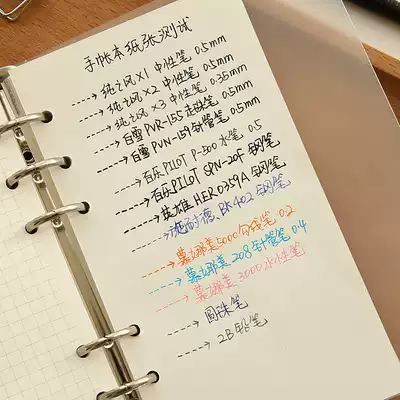 手帐本纸张测试
纯之风X1 中性笔 0.5mm
纯之风X2 中性笔 0.5mm
纯之风X3 中性笔 0.35mm
白雪PVR-155 走珠笔 0.5mm
白雪PVN-159 针管笔 0.5mm
百乐PILOT P-500 水笔 0.5
百乐PILOT SPN-20F 钢笔
英雄 HERO359A 钢笔
施耐德 BK402 钢笔
慕娜美5000 勾线笔 0.2
慕娜美 208 针管笔 0.4
慕娜美 3000 水性笔
圆珠笔
2B铅笔